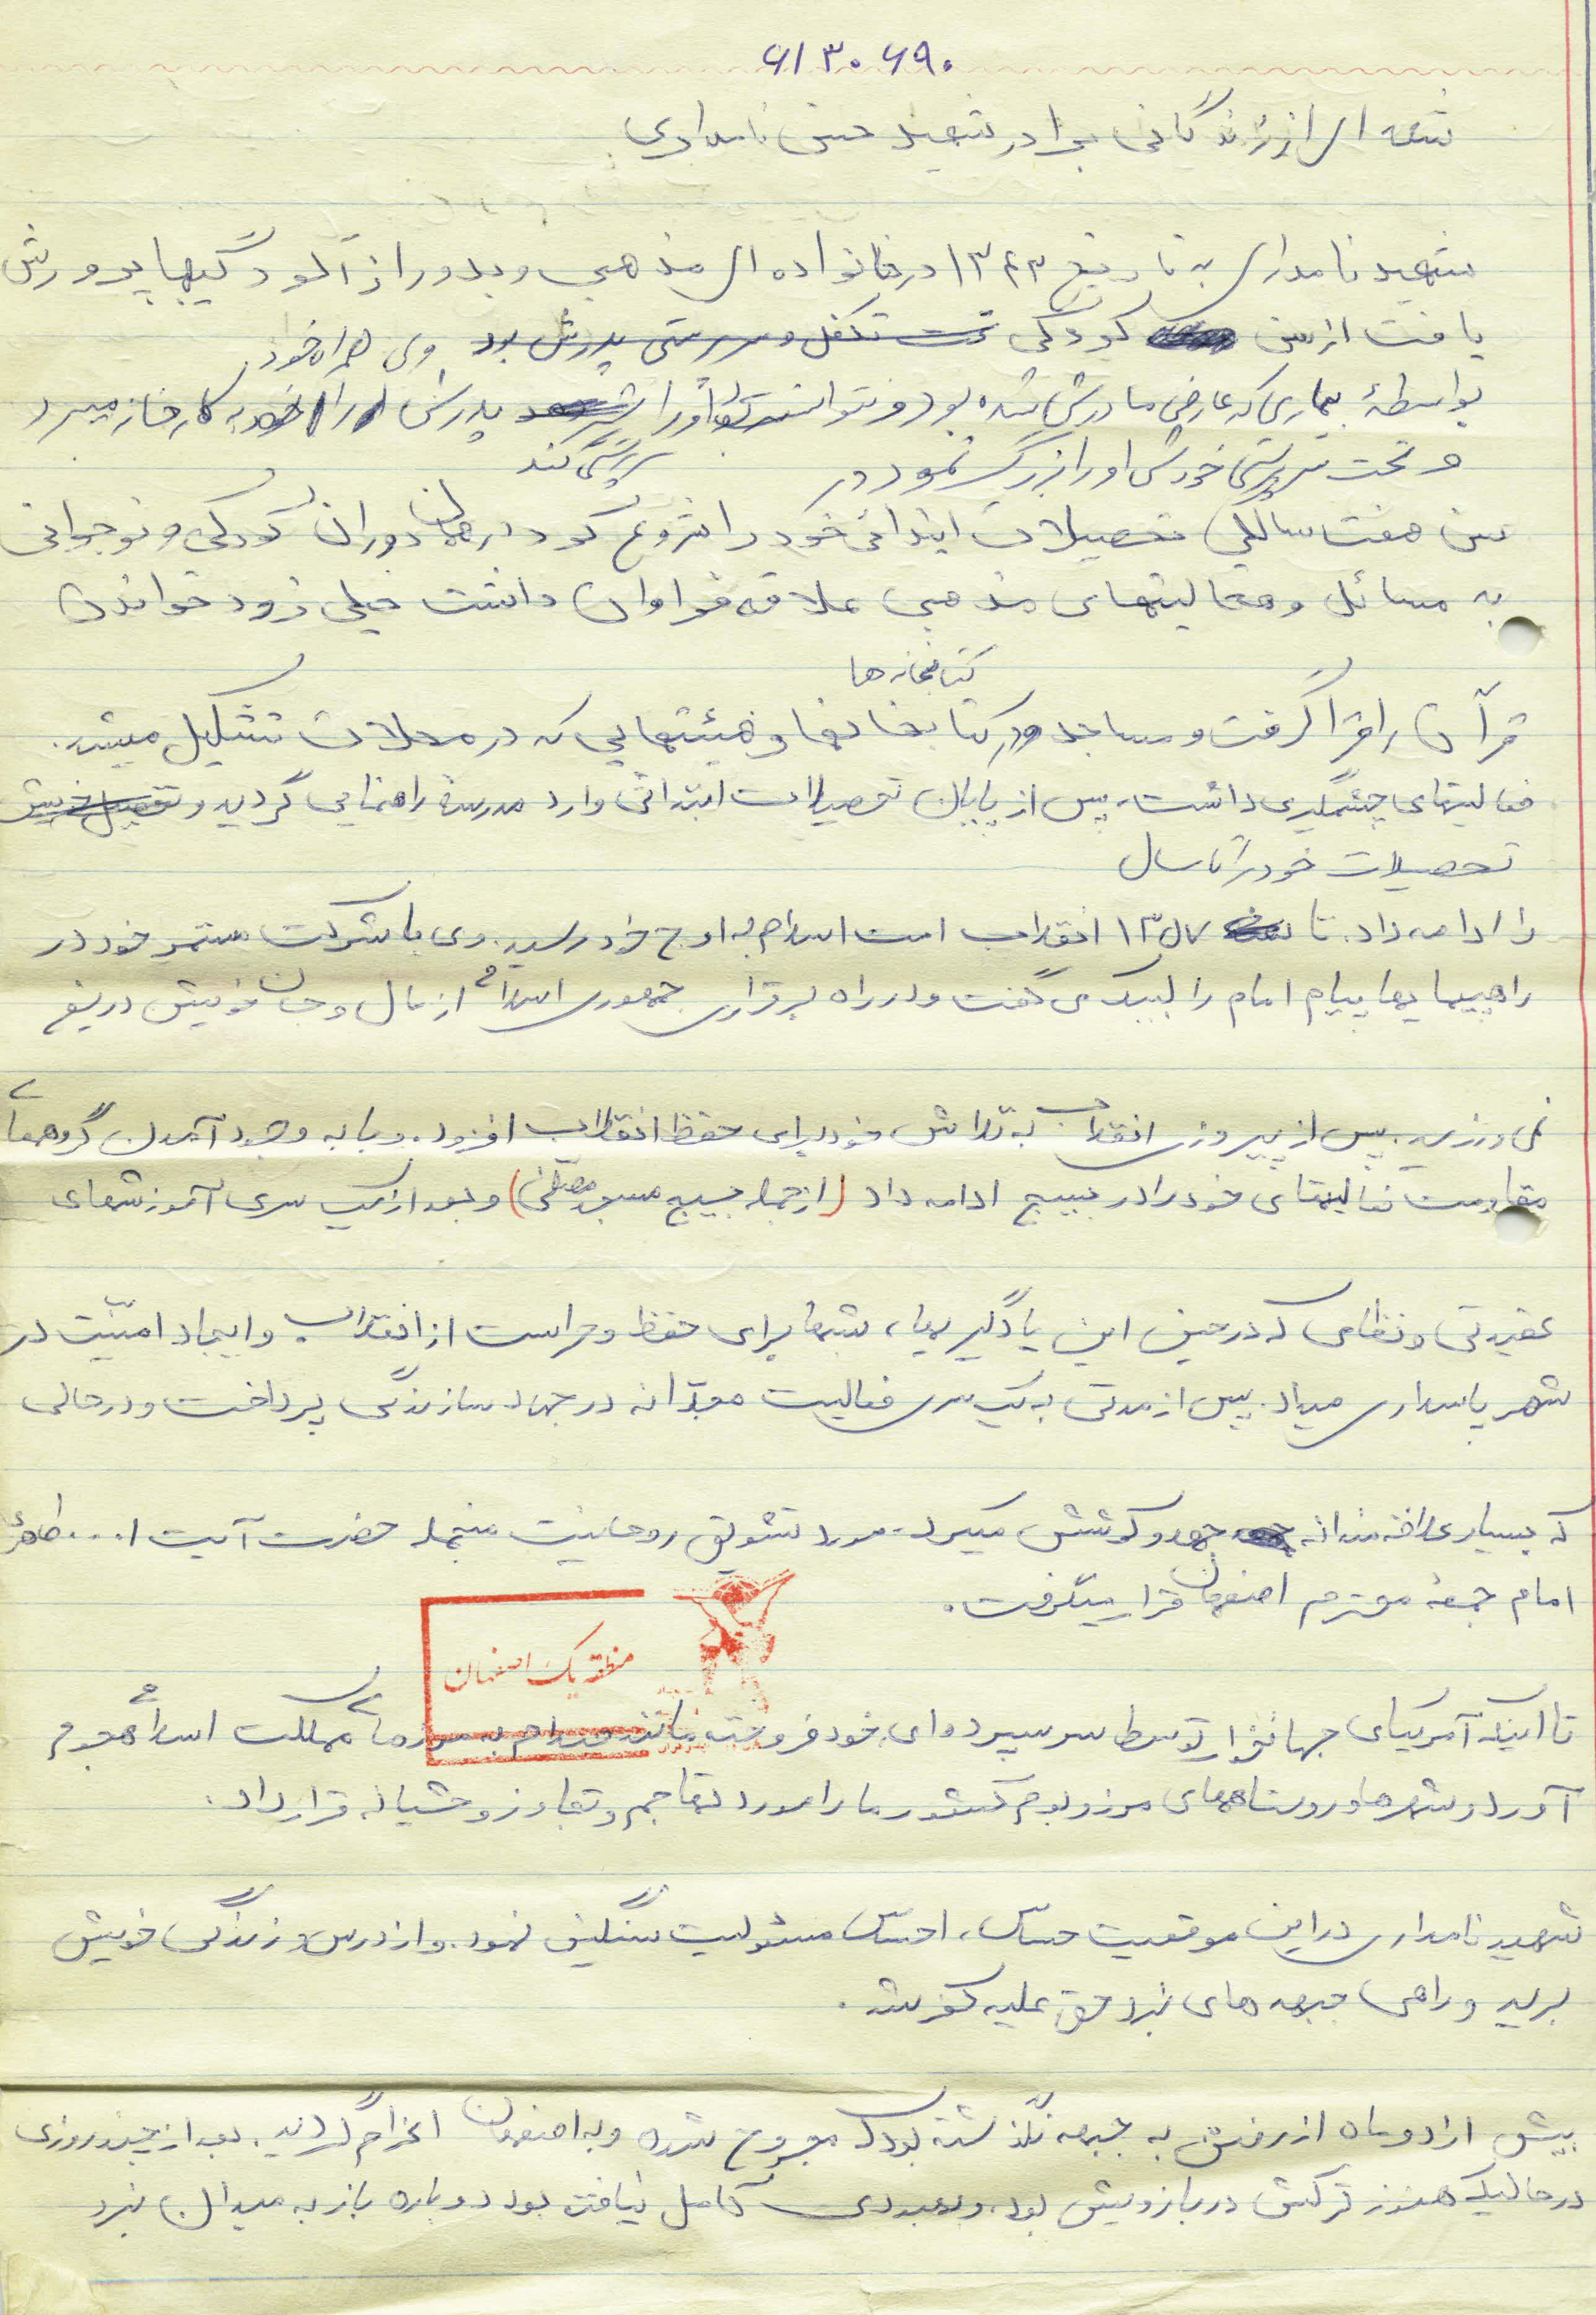 ۶۱۳۰۶۹۰
شمه ای از زندگانی برادر شهید حسن نامداری
شهید نامداری به تاریخ ۱۳۴۳ در خانواده ای مذهبی و بدور از آلودگیها پرورش
یافت از سن کودکی تحت تکفل و سرپرستی پدرش بود وی همراه خود
بواسطهٔ بیماری که عارض مادرش شده بود و نتوانست او را پدرش او را به کارخانه میبرد
سرپرستی کند
و تحت سرپرستی خودش او را بزرگ نمود در
سن هفت سالگی تحصیلات ابتدائی خود را شروع کرد در همان دوران کودکی و نوجوانی
به مسائل و فعالیتهای مذهبی علاقه فراوان داشت خیلی زود خواندن
کتابخانه ها
قرآن را فرا گرفت و مساجد و در کتابخانها و هیئتهایی که در محلات تشکیل میشد.
فعالیتهای چشمگیری داشت، پس از پایان تحصیلات ابتدائی وارد مدرسهٔ راهنمایی گردید و تحصیل خویش
تحصیلات خود را تا سال
را ادامه داد. تا ۱۳۵۷ انقلاب امت اسلام به اوج خود رسید. وی با شرکت مستمر خود در
راهپیمایها پیام امام را لبیک می گفت و در راه برقراری جمهوری اسلامی از مال و جان خویش دریغ
نمی ورزید. پس از پیروزی انقلاب به تلاش خود برای حفظ انقلاب افزود. و با به وجود آمدن گروههای
مقاومت فعالیتهای خود را در بسیج ادامه داد (از جمله بسیج مسجد مصلی) و بعد از یک سری آموزشهای
عقیدتی و نظامی که در حین این یادگیریها، شبها برای حفظ و حراست از انقلاب و ایجاد امنیّت در
شهر پاسداری میداد. پس از مدتی به یک سری فعالیت مجدّانه در جهاد سازندگی پرداخت و در حالی
که بسیار علاقه مندانه جهد و کوشش میکرد. مورد تشویق روحانیت منجمله حضرت آیت ا... طاهری
امام جمعهٔ محترم اصفهان قرار میگرفت.
منطقه یک اصفهان
تا اینکه آمریکای جهانخوار توسط سرسپرده ای خود فروخته مانند صدام به مرزهای مملکت اسلامی هجوم
آورد و شهرها و روستاههای مرز و بوم کشور ما را مورد تهاجم و تجاوز وحشیانه قرار داد.
شهید نامداری در این موقعیت حساس، احساس مسئولیت سنگین نمود. و از درس و زندگی خویش
برید و راهی جبهه های نبرد حق علیه کفر شد.
بیش از دو ماه از رفتنش به جبهه نگذشته بود که مجروح شده و به اصفهان اعزام گردید. بعد از چند روزی
در حالیکه هنوز ترکش در بازویش بود، و بهبودی کامل نیافته بود دوباره باز به میدان نبرد